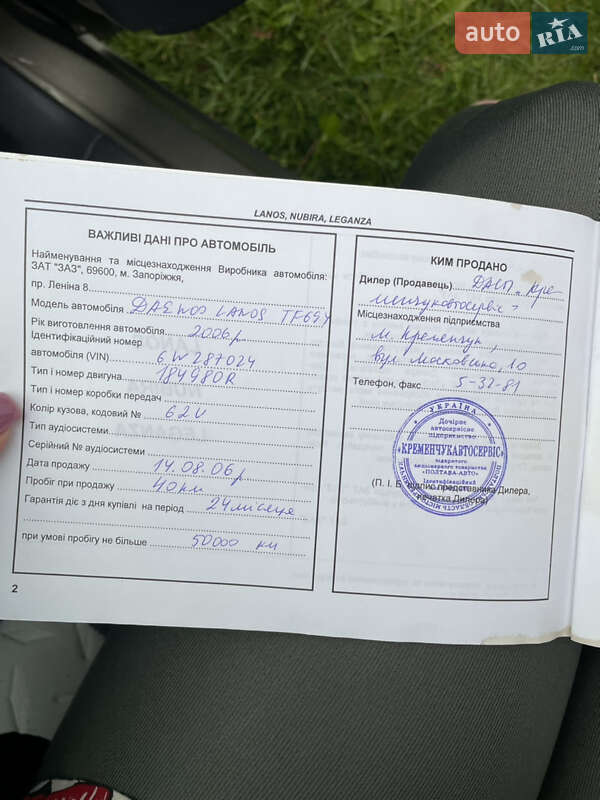 auto RIA.com
LANOS, NUBIRA, LEGANZA
ВАЖЛИВІ ДАНІ ПРО АВТОМОБІЛЬ
Найменування та місцезнаходження Виробника автомобіля:
ЗАТ "ЗАЗ", 69600, м. Запоріжжя,
пр. Леніна 8
Модель автомобіля DAEWOO LANOS TF69Y
Рік виготовлення автомобіля 2006р
Ідентифікаційний номер
автомобіля (VIN) 6W287024
Тип і номер двигуна 184980R
Тип і номер коробки передач
Колір кузова, кодовий № 62U
Тип аудіосистеми
Серійний № аудіосистеми
Дата продажу 14.08.06р
Пробіг при продажу 40км
Гарантія діє з дня купівлі на період 24 місяця
при умові пробігу не більше 50000 км
2
КИМ ПРОДАНО
Дилер (Продавець) ДАСП "Кре-
менчукавтосервіс"
Місцезнаходження підприємства
м. Кременчук,
вул. Московська, 10
Телефон, факс 5-32-81
УКРАЇНА
Дочірнє
автосервісне
підприємство
«КРЕМЕНЧУКАВТОСЕРВІС»
відкритого
акціонерного товариства
«ПОЛТАВА-АВТО»
Ідентифікаційний
(П. І. Б. підпис представника Дилера,
печатка Дилера)